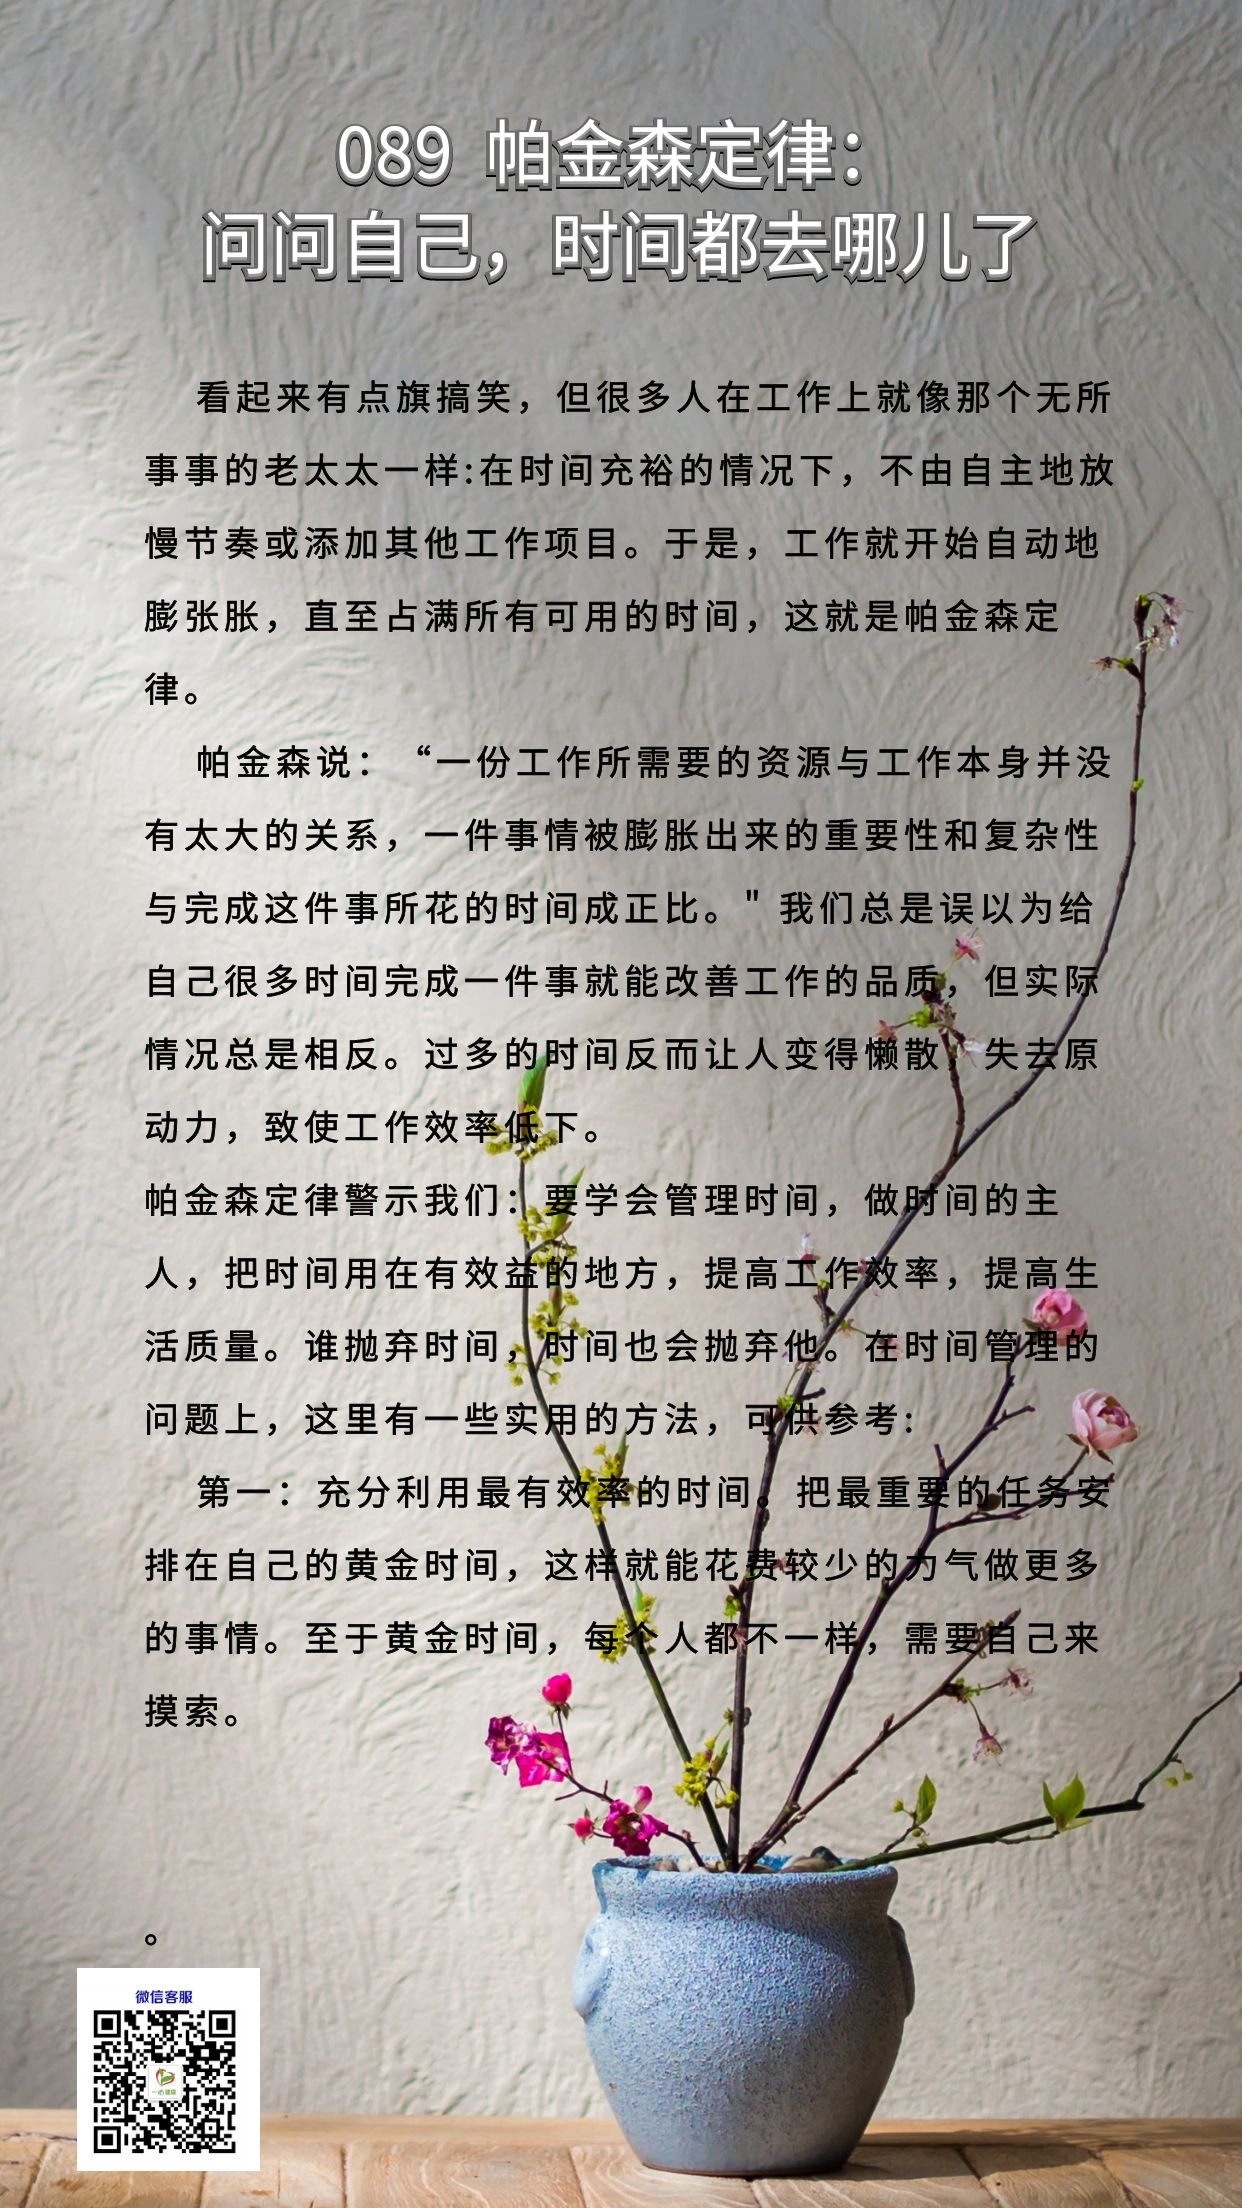 089 帕金森定律：
问问自己，时间都去哪儿了
看起来有点旗搞笑，但很多人在工作上就像那个无所
事事的老太太一样:在时间充裕的情况下，不由自主地放
慢节奏或添加其他工作项目。于是，工作就开始自动地
膨张胀，直至占满所有可用的时间，这就是帕金森定
律。
帕金森说：“一份工作所需要的资源与工作本身并没
有太大的关系，一件事情被膨胀出来的重要性和复杂性
与完成这件事所花的时间成正比。" 我们总是误以为给
自己很多时间完成一件事就能改善工作的品质，但实际
情况总是相反。过多的时间反而让人变得懒散，失去原
动力，致使工作效率低下。
帕金森定律警示我们：要学会管理时间，做时间的主
人，把时间用在有效益的地方，提高工作效率，提高生
活质量。谁抛弃时间，时间也会抛弃他。在时间管理的
问题上，这里有一些实用的方法，可供参考:
第一：充分利用最有效率的时间。把最重要的任务安
排在自己的黄金时间，这样就能花费较少的力气做更多
的事情。至于黄金时间，每个人都不一样，需要自己来
摸索。
。
微信客服